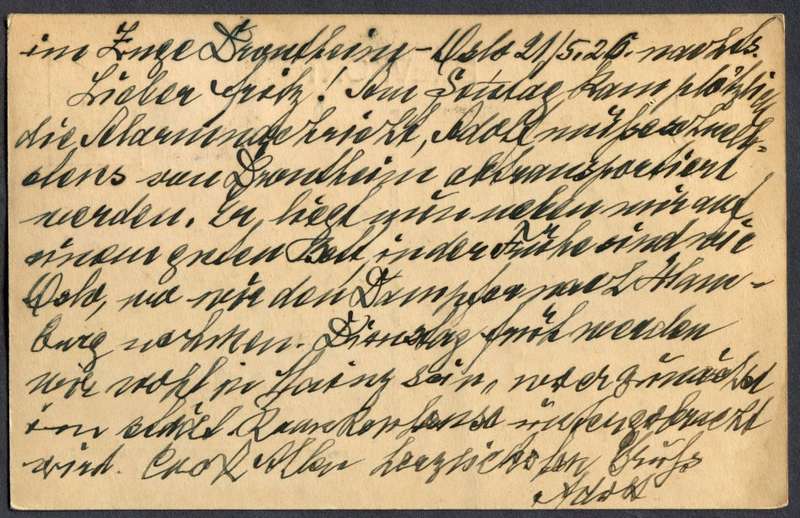 im Zuge Drontheim-Oslo 21/5.26. nachts.
Lieber Fritz! Am Sonntag kam plötzlich
die Alarmnachricht, Adolf müsse schnell-
stens von Drontheim abtransportiert
werden. Er liegt nun neben mir auf
einem guten Bett in der Frühe sind wir
Oslo, wo wir den Dampfer nach Ham-
burg nehmen. Dienstag früh werden
wir wohl in Mainz sein, wo er zunächst
im städt Krankenhaus untergebracht
wird. Euch Allen herzlichsten Gruß
Adolf